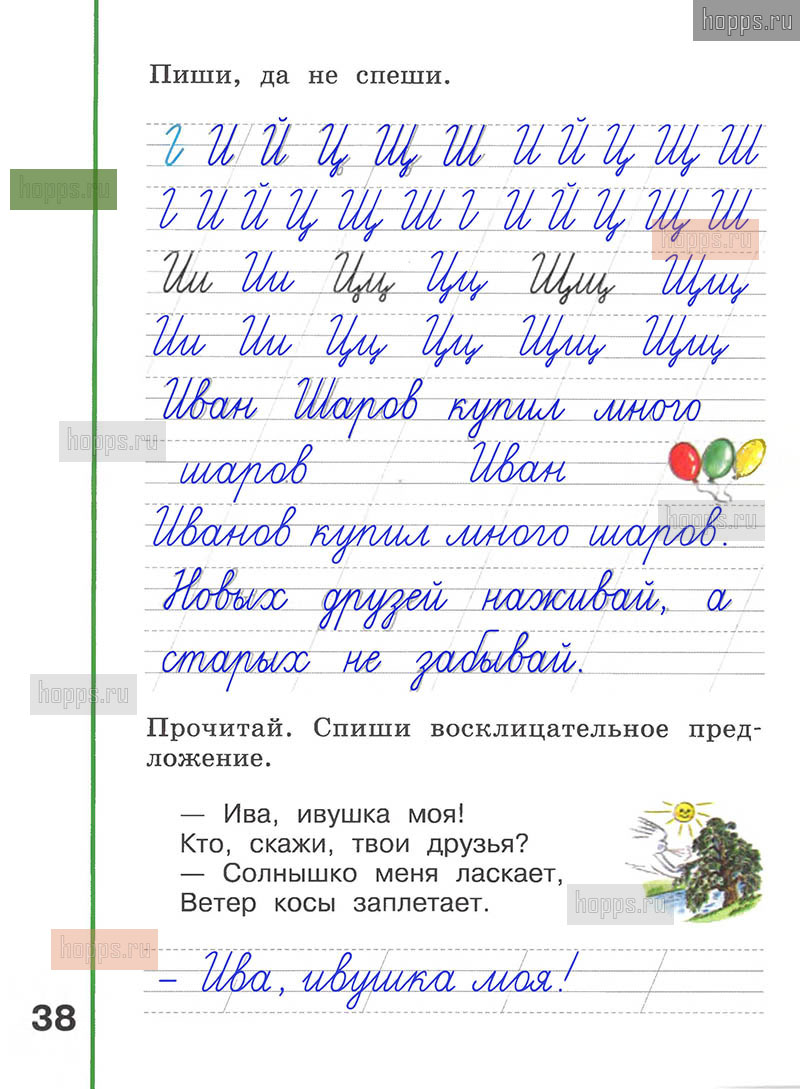 hopps.ru
Пиши, да не спеши.
И Й Ц Щ Ш И Й Ц Щ Ш
hopps.ru
И Й Ц Щ Ш И Й Ц Щ Ш
hopps.ru
Ии Ии Цц Цц Щщ Щщ
Ии Ии Цц Цц Щщ Щщ
Иван Шаров купил много
hopps.ru
шаров Иван
hopps.ru
Иванов купил много шаров.
Новых друзей наживай, а
старых не забывай.
hopps.ru
Прочитай. Спиши восклицательное пред-
ложение.
— Ива, ивушка моя!
Кто, скажи, твои друзья?
— Солнышко меня ласкает,
Ветер косы заплетает.
hopps.ru
hopps.ru
– Ива, ивушка моя!
38